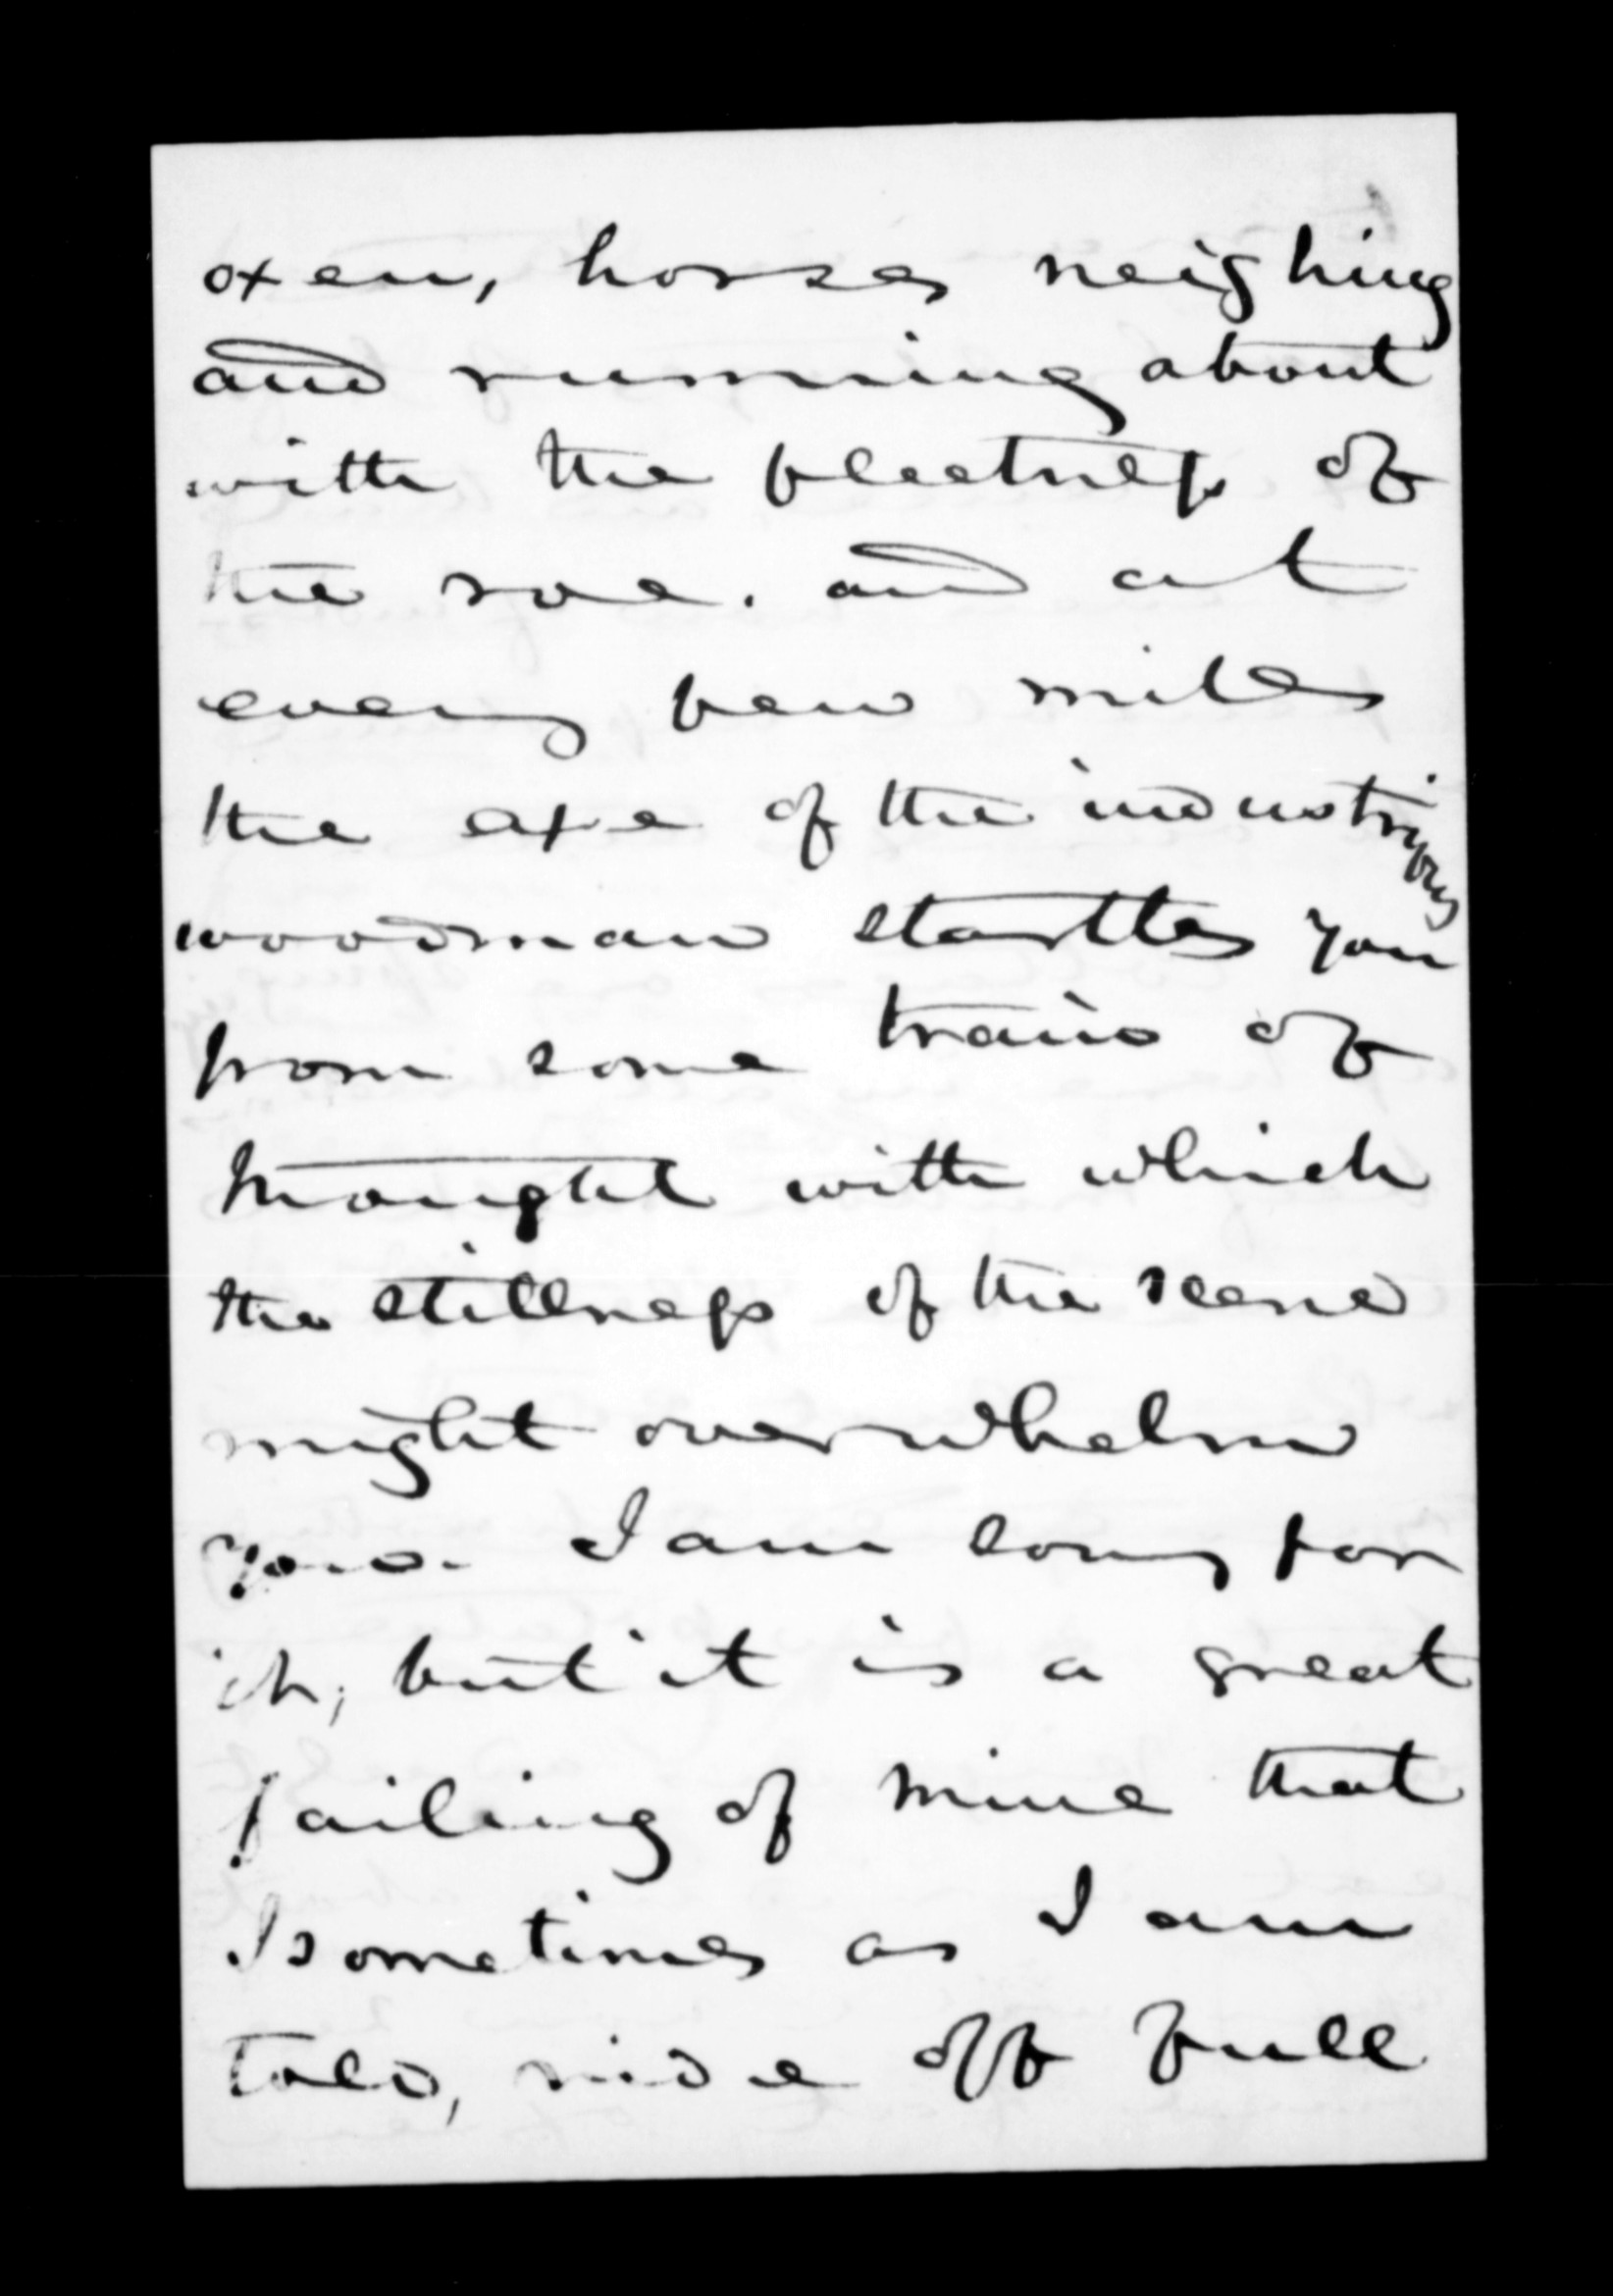 oxen, horses neighing
and running about
with the fleetness of
the roe. and at
every few miles
the axe of the industrious
woodman startles you
from some train of
thought with which
the stillness of the scene
might overwhelm
you. I am sorry for
it, but it is a great
failing of mine that
I sometimes as I am
told, ride off full